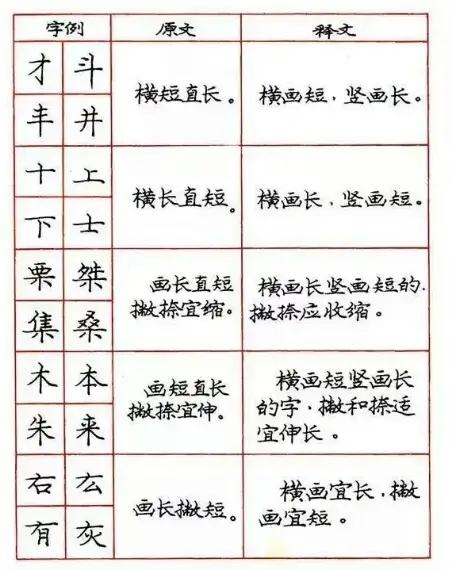 字例 原文 释文
才 斗
丰 井
横短直长。
横画短，竖画长。
十 上
下 士
横长直短。
横画长，竖画短。
栗 桀
集 桑
画长直短
撇捺宜缩。
横画长竖画短的，
撇捺应收缩。
木 本
朱 来
画短直长
撇捺宜伸。
横画短竖画长
的字，撇和捺适
宜伸长。
右 
有 灰
画长撇短。
横画宜长，撇
画宜短。